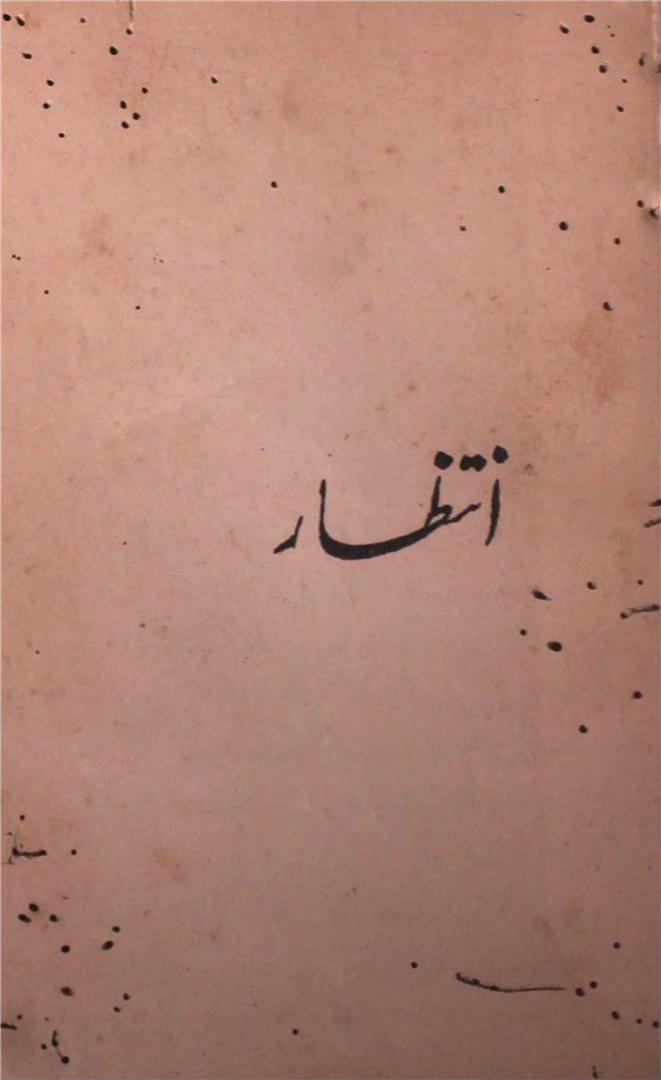 انتظار